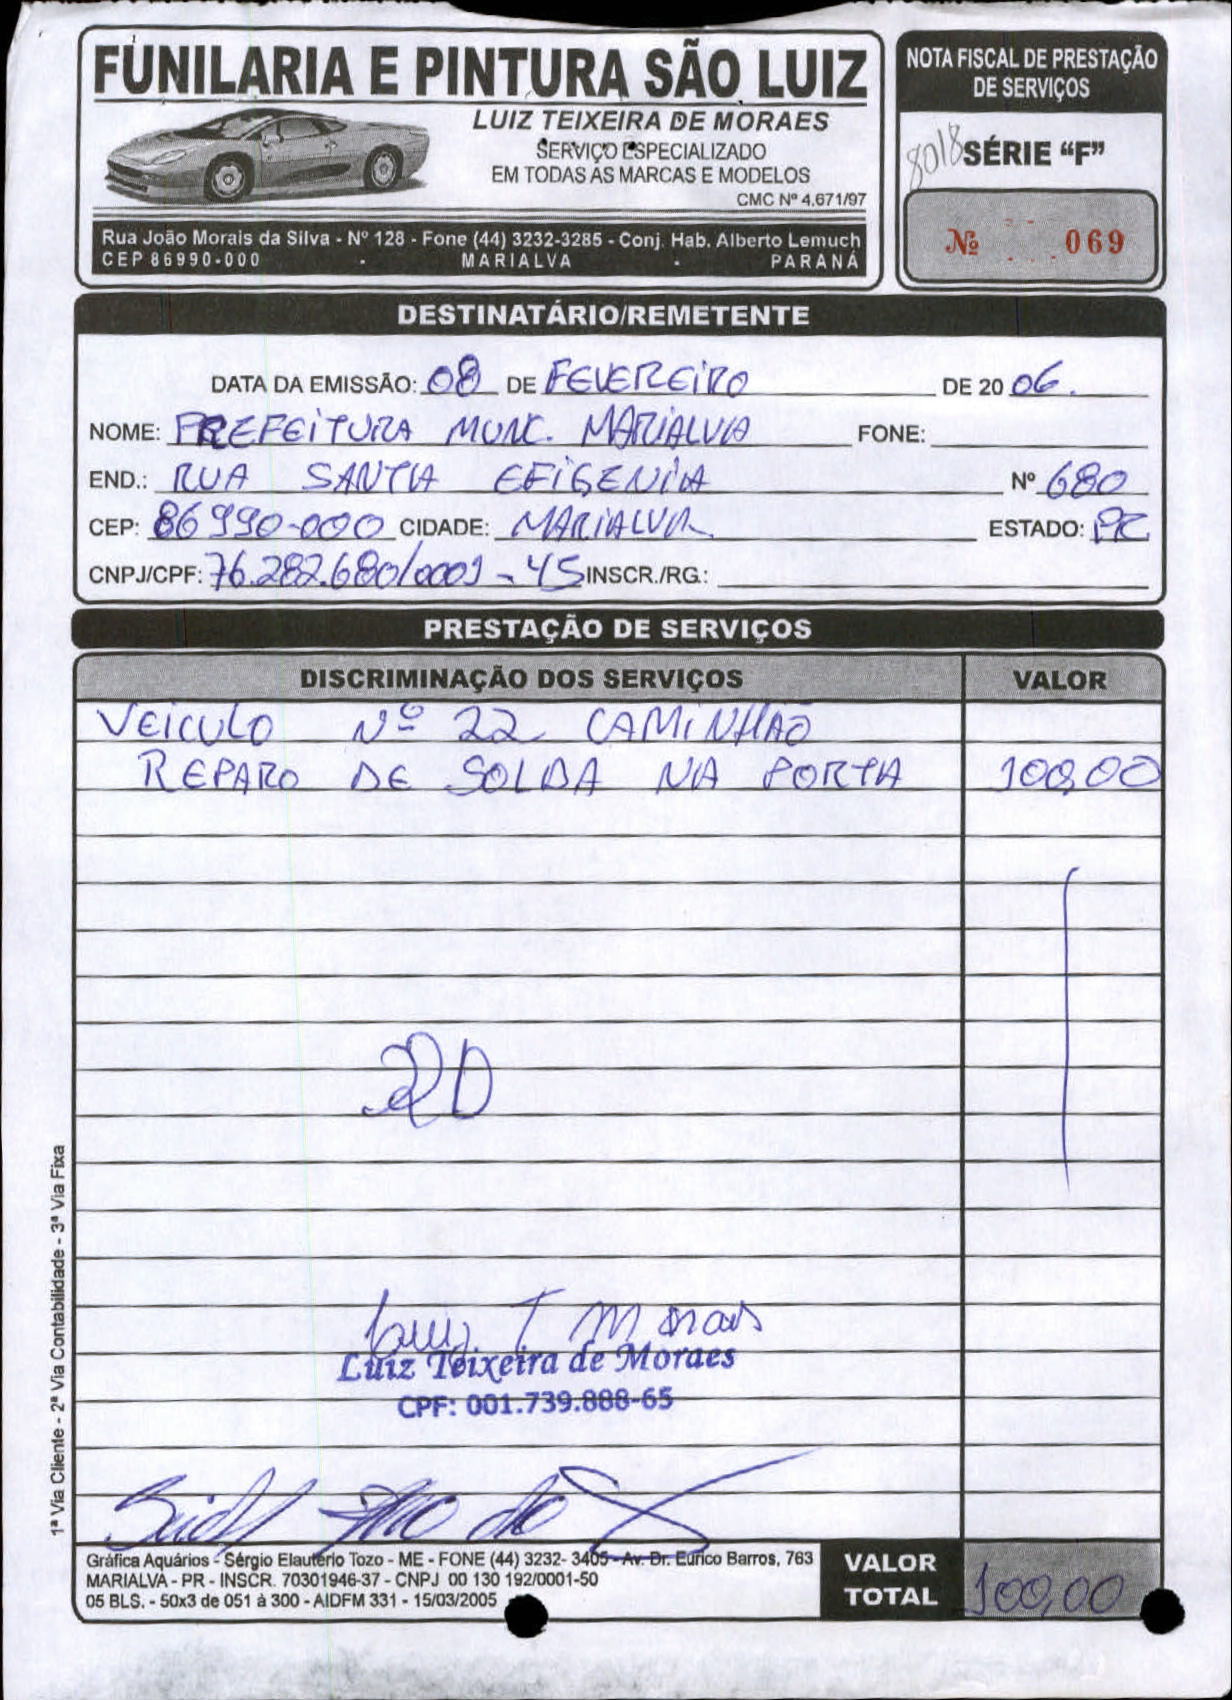 FUNILARIA E PINTURA SÃO LUIZ
LUIZ TEIXEIRA DE MORAES
SERVIÇO ESPECIALIZADO
EM TODAS AS MARCAS E MODELOS
CMC Nº 4.671/97
Rua João Morais da Silva - Nº 128 - Fone (44) 3232-3285 - Conj. Hab. Alberto Lemuch
CEP 86990-000 - MARIALVA - PARANÁ
NOTA FISCAL DE PRESTAÇÃO
DE SERVIÇOS
8018 SÉRIE "F"
Nº 069
DESTINATÁRIO/REMETENTE
DATA DA EMISSÃO: 08 DE FEVEREIRO DE 20 06.
NOME: PREFEITURA MUNC. MARIALVA FONE:
END.: RUA SANTA EFIGENIA Nº 680
CEP: 86990-000 CIDADE: MARIALVA ESTADO: PR
CNPJ/CPF: 76.282.680/0001-45 INSCR./RG.:
PRESTAÇÃO DE SERVIÇOS
DISCRIMINAÇÃO DOS SERVIÇOS VALOR
VEICULO Nº 22 CAMINHÃO
REPARO DE SOLDA NA PORTA 100,00
Luiz T Morais
Luiz Teixeira de Moraes
CPF: 001.739.888-65
1ª Via Cliente - 2ª Via Contabilidade - 3ª Via Fixa
Gráfica Aquários - Sérgio Elautério Tozo - ME - FONE (44) 3232- 3405 - Av. Dr. Eurico Barros, 763
MARIALVA - PR - INSCR. 70301946-37 - CNPJ 00 130 192/0001-50
05 BLS. - 50x3 de 051 à 300 - AIDFM 331 - 15/03/2005
VALOR
TOTAL 100,00